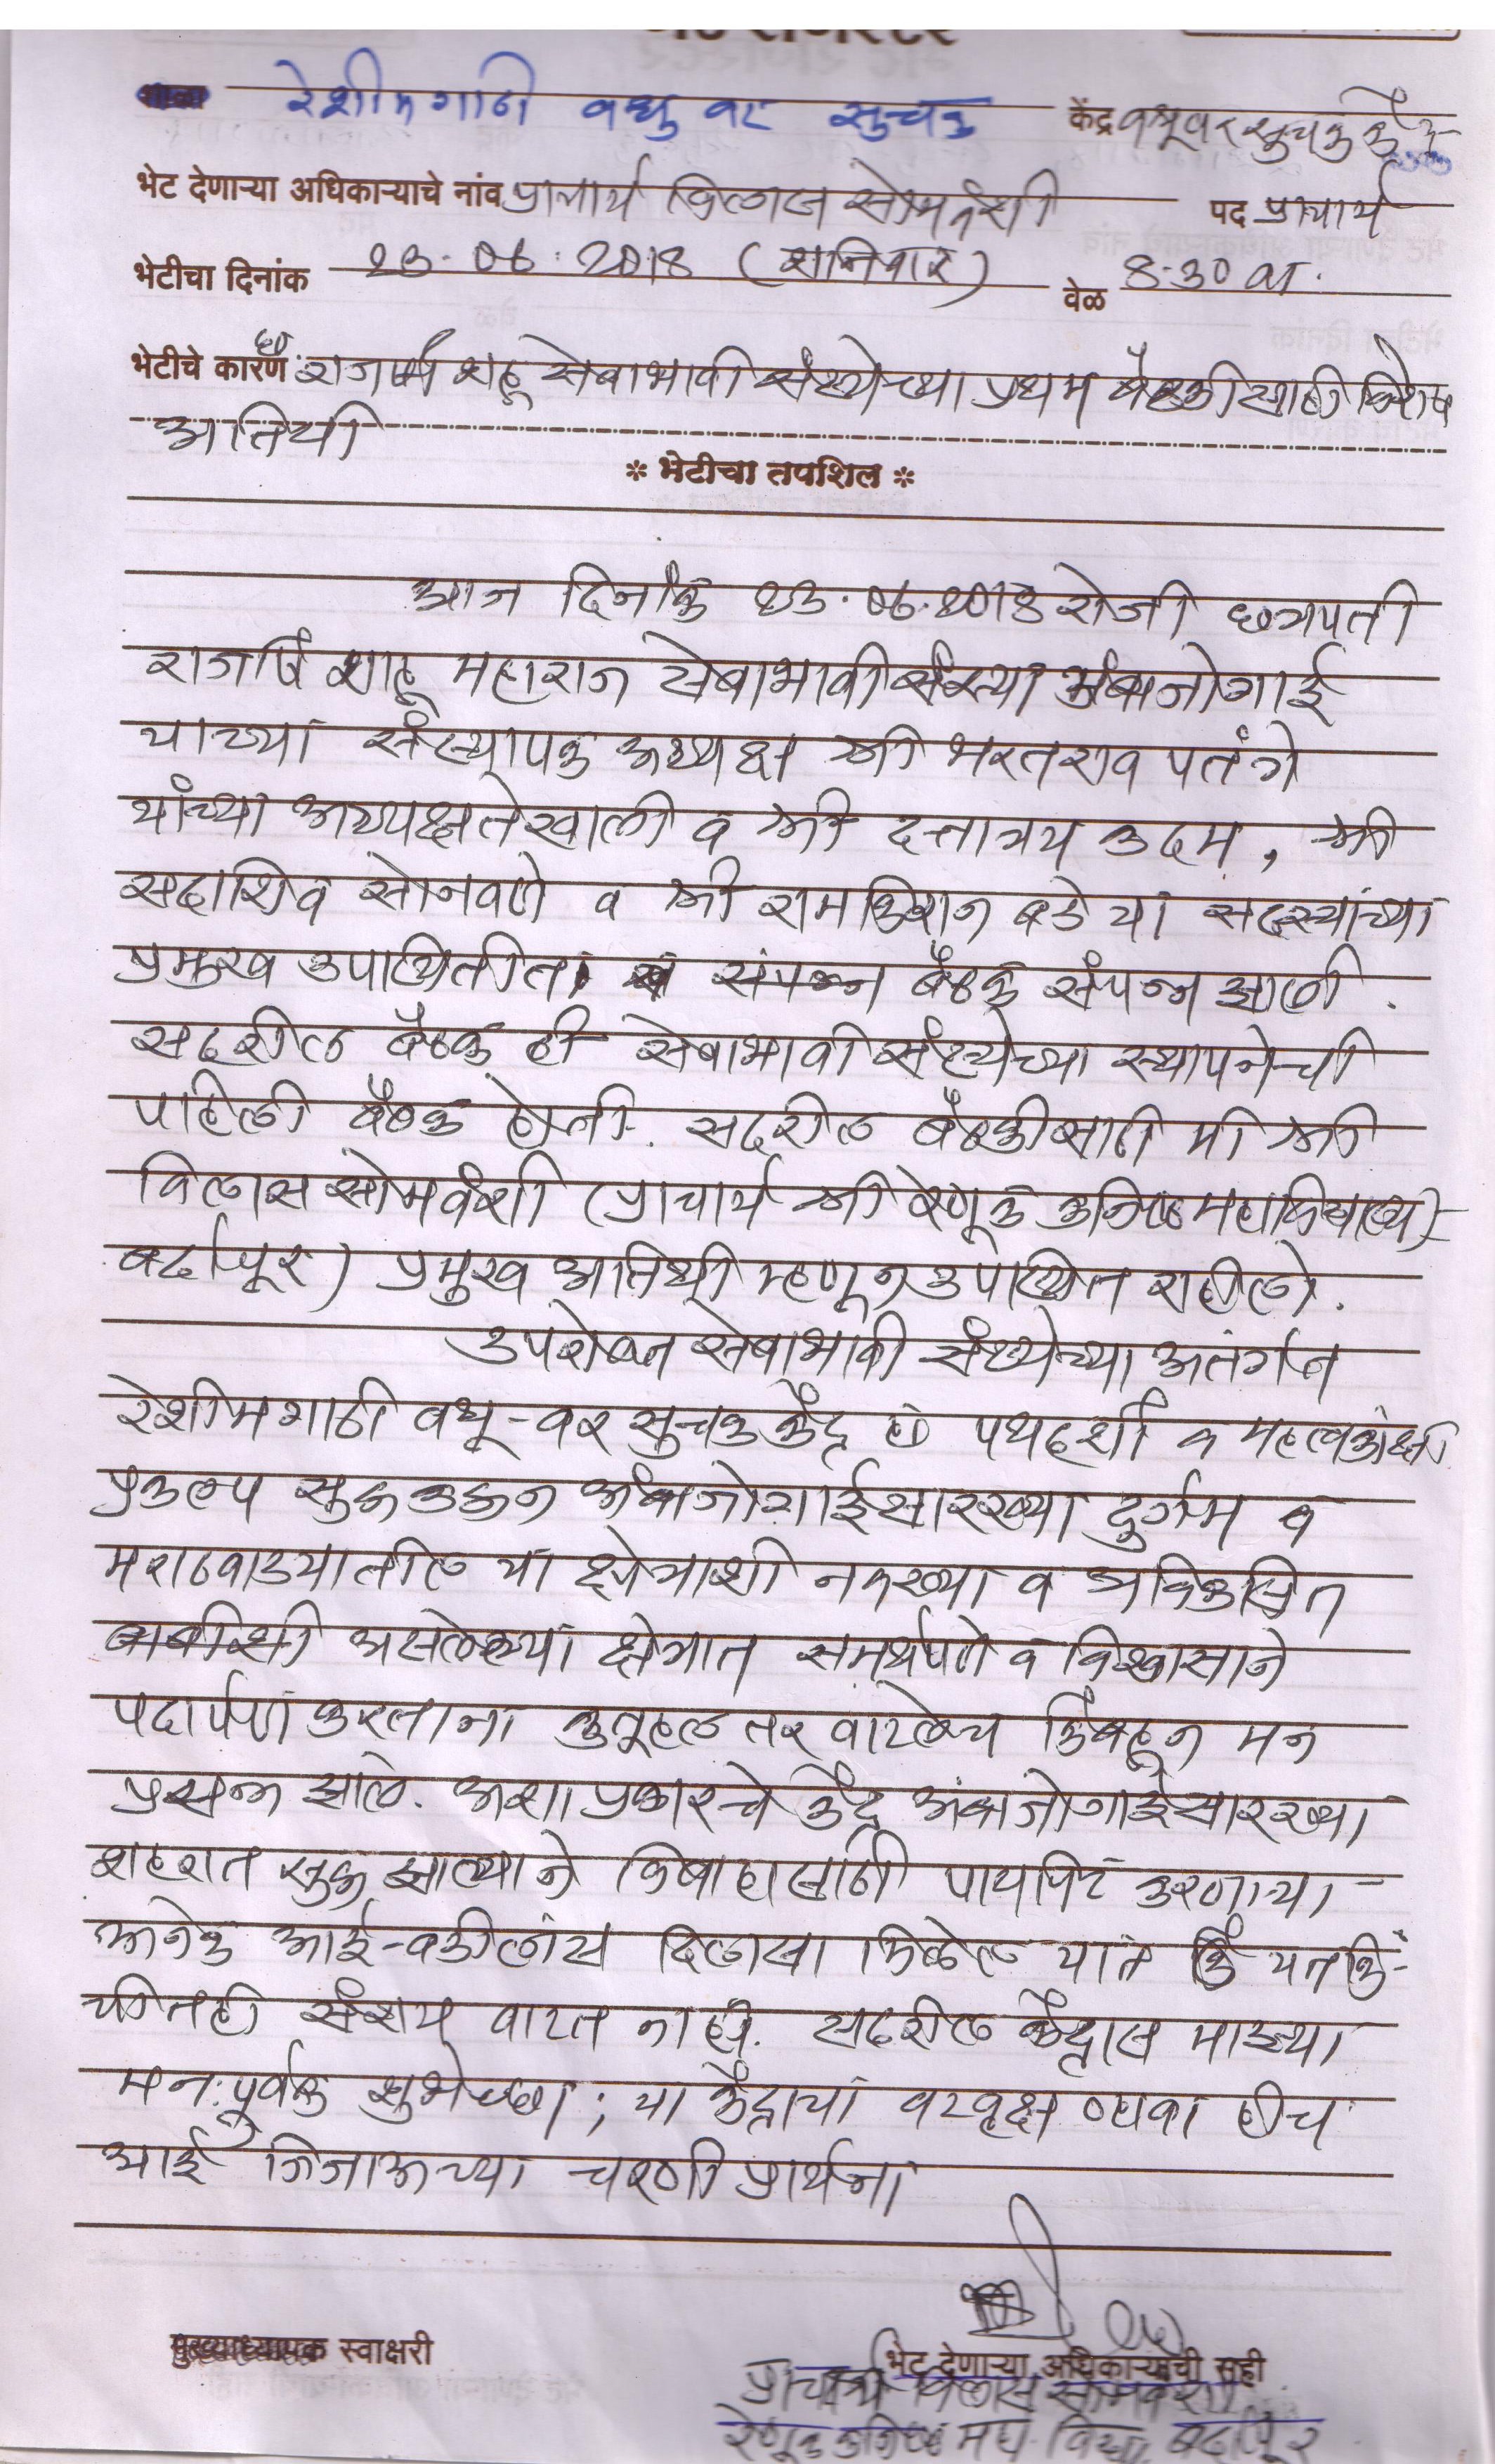 रेशीमगाठी वधु वर सुचक केंद्र वधूवर सुचक केंद्र
भेट देणाऱ्या अधिकाऱ्याचे नांव प्राचार्य विलास सोमवंशी पद प्राचार्य
भेटीचा दिनांक 23.06.2018 (शनिवार) वेळ 8:30 वा.
भेटीचे कारण छ. राजर्षि शाहू सेवाभावी संस्थेच्या प्रथम बैठकीसाठी विशेष
अतिथी
* भेटीचा तपशिल *
आज दिनांक 23.06.2018 रोजी छत्रपती
राजर्षि शाहू महाराज सेवाभावी संस्था अंबाजोगाई
याच्या संस्थापक अध्यक्ष श्री भरतराव पतंगे
यांच्या अध्यक्षतेखाली व श्री दत्तात्रय कदम, श्री
सदाशिव सोनवणे व श्री रामकिशन बडे या सदस्यांच्या
प्रमुख उपस्थितीत संपन्न बैठक संपन्न झाली.
सदरील बैठक ही सेवाभावी संस्थेच्या स्थापनेची
पहिली बैठक होती. सदरील बैठकीसाठी मी श्री
विलास सोमवंशी (प्राचार्य श्री रेणूक कनिष्ठ महाविद्यालय)
बर्दापूर) प्रमुख अतिथी म्हणून उपस्थित राहीलो.
उपरोक्त सेवाभावी संस्थेच्या अतंर्गत
रेशीमगाठी वधू-वर सुचक केंद्र हे पथदर्शी व महत्वकांक्षी
प्रकल्प सुरू करून अंबाजोगाईसारख्या दुर्गम व
मराठवाड्यातील या क्षेत्राशी नवख्या व अविकसित
बाबीशी असलेल्या क्षेत्रात समर्थपणे व विश्वासाने
पदार्पण करताना कुतूहल तर वाटलेच किंबहून मन
प्रसन्न झाले. अशा प्रकारचे केंद्र अंबाजोगाईसारख्या
शहरात सुरू झाल्याने विवाहासाठी पायपिट करणाऱ्या
अनेक आई-वडीलांस दिलासा मिळेल यात यतकिं-
चीतही संशय वाटत नाही. सदरील केंद्रास माझ्या
मन:पुर्वक शुभेच्छा; या केंद्राचा वटवृक्ष व्हावा हीच
आई जिजाऊच्या चरणी प्रार्थना
मुख्याध्यापक स्वाक्षरी भेट देणाऱ्या अधिकाऱ्याची सही
प्राचार्य विलास सोमवंशी
रेणूक कनिष्ठ महा विद्या बर्दापूर